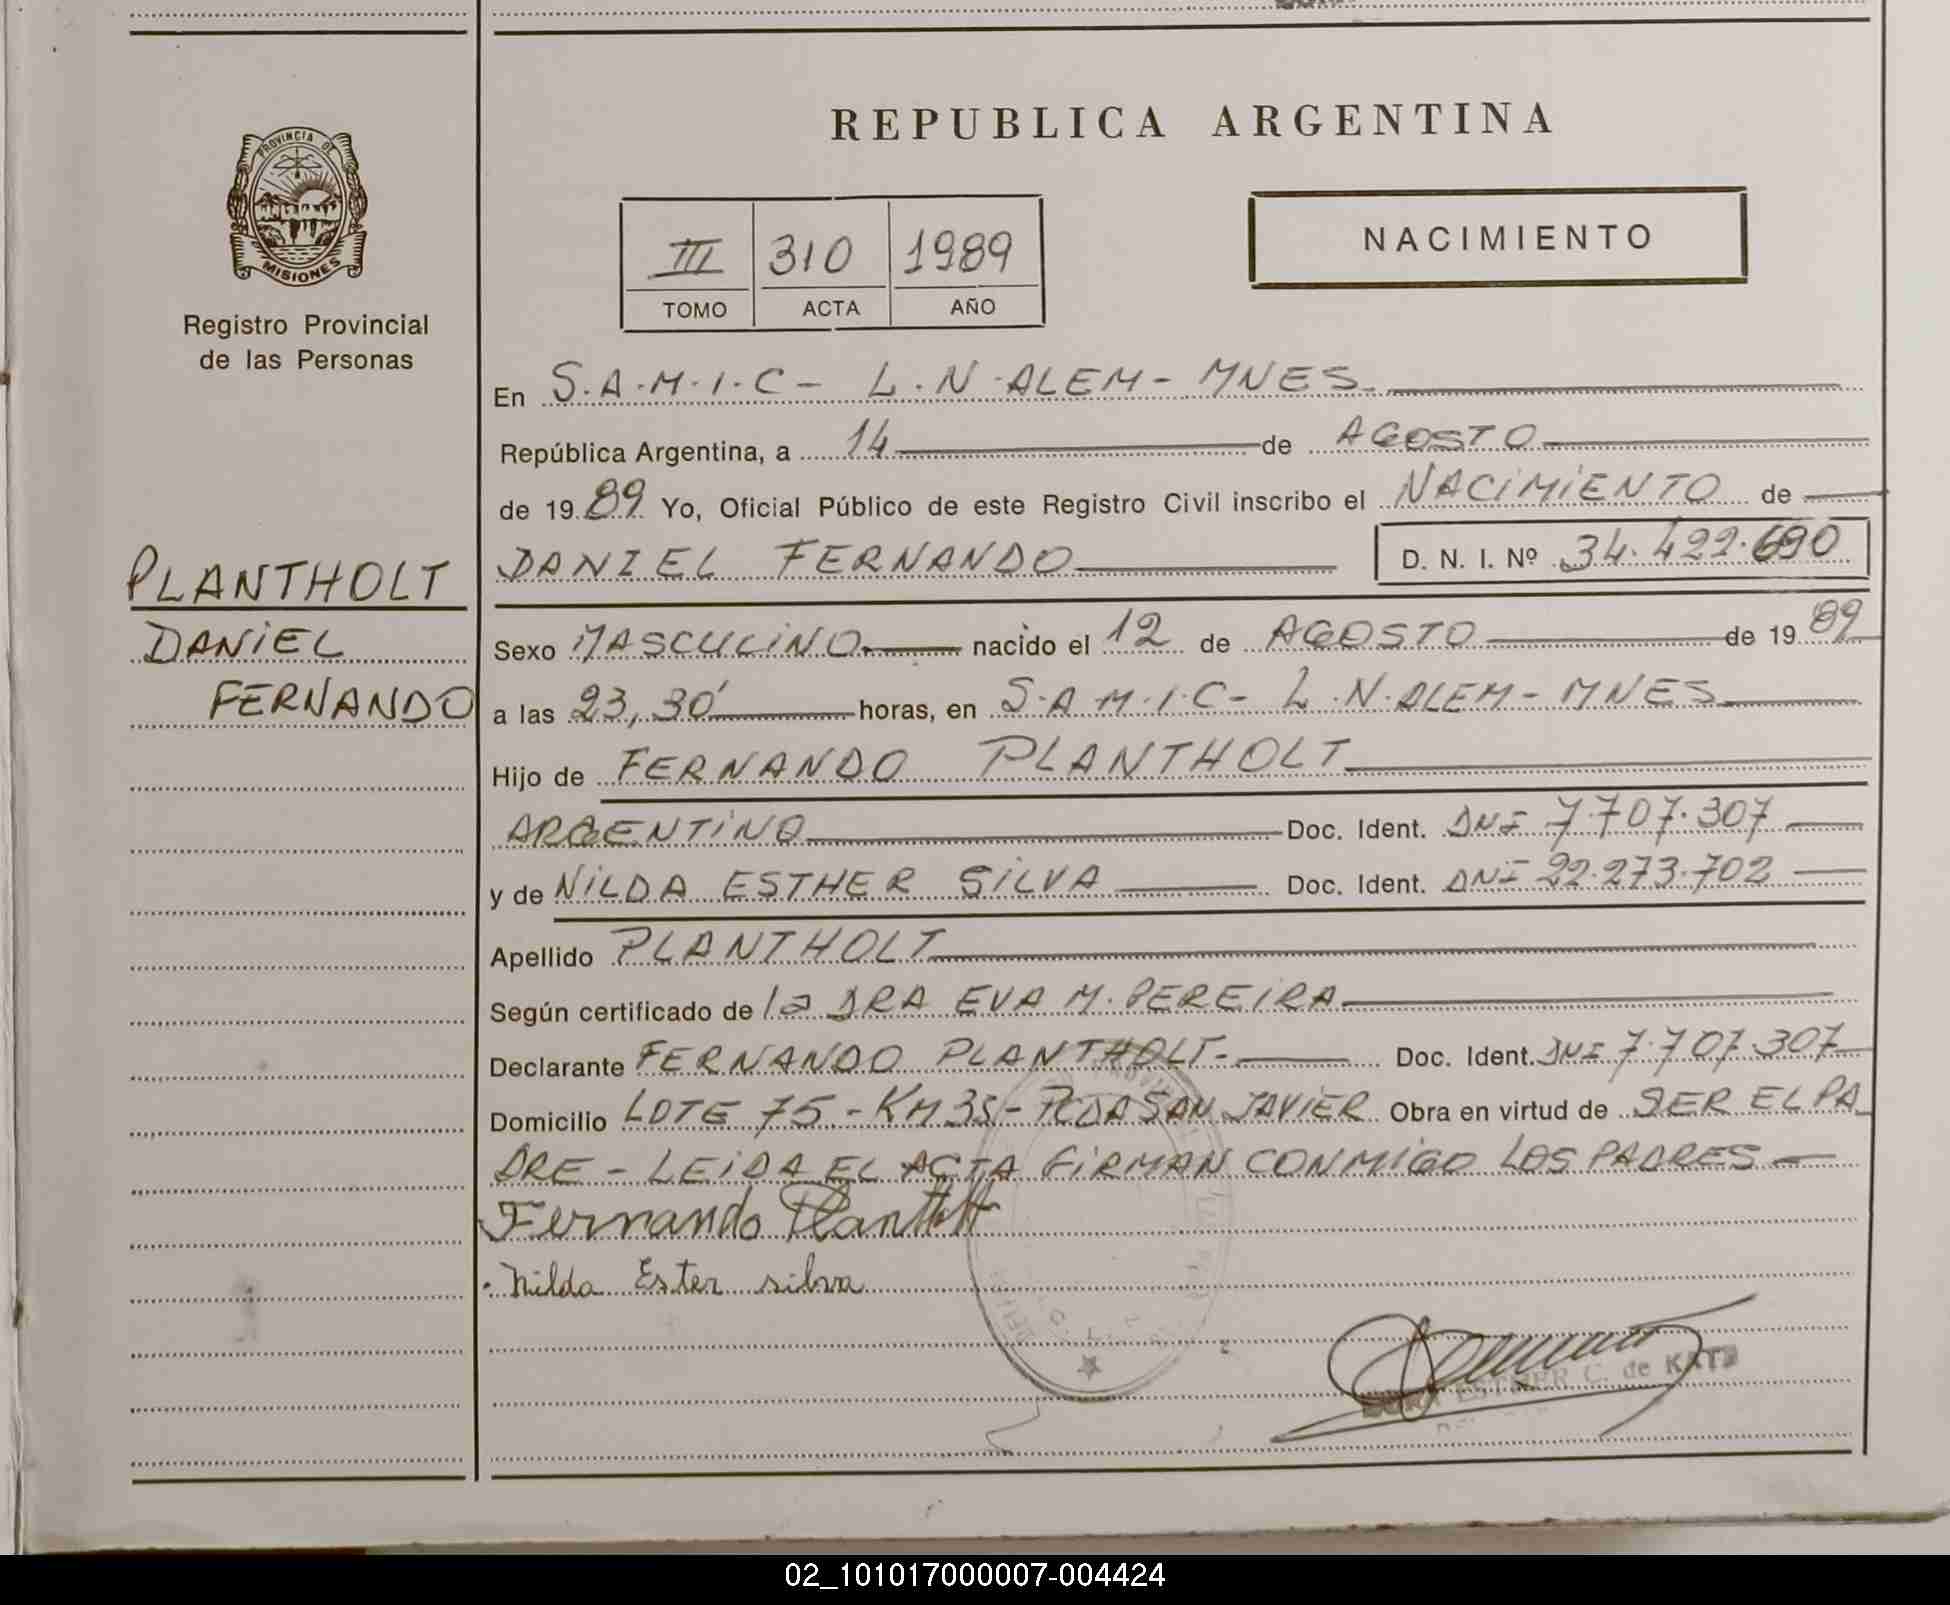 REPUBLICA ARGENTINA
PROVINCIA DE
MISIONES
Registro Provincial
de las Personas
III 310 1989
TOMO ACTA AÑO
NACIMIENTO
PLANTHOLT
DANIEL
FERNANDO
En S.A.M.I.C - L.N.ALEM - MNES
República Argentina, a 14 de AGOSTO
de 1989 Yo, Oficial Público de este Registro Civil inscribo el NACIMIENTO de
DANIEL FERNANDO D. N. I. Nº 34.422.690
Sexo MASCULINO nacido el 12 de AGOSTO de 1989
a las 23,30' horas, en S.A.M.I.C - L.N.ALEM - MNES
Hijo de FERNANDO PLANTHOLT
ARGENTINO Doc. Ident. DNI 7.707.307
y de NILDA ESTHER SILVA Doc. Ident. DNI 22.273.702
Apellido PLANTHOLT
Según certificado de la DRA EVA M. PEREIRA
Declarante FERNANDO PLANTHOLT - Doc. Ident. DNI 7.707.307
Domicilio LOTE 75 - KM 35 - PCDA SAN JAVIER Obra en virtud de SER EL PA
DRE - LEIDA EL ACTA FIRMAN CONMIGO LOS PADRES
Fernando Plantholt
Nilda Ester silva
ESTHER C. de KATZ
02_101017000007-004424